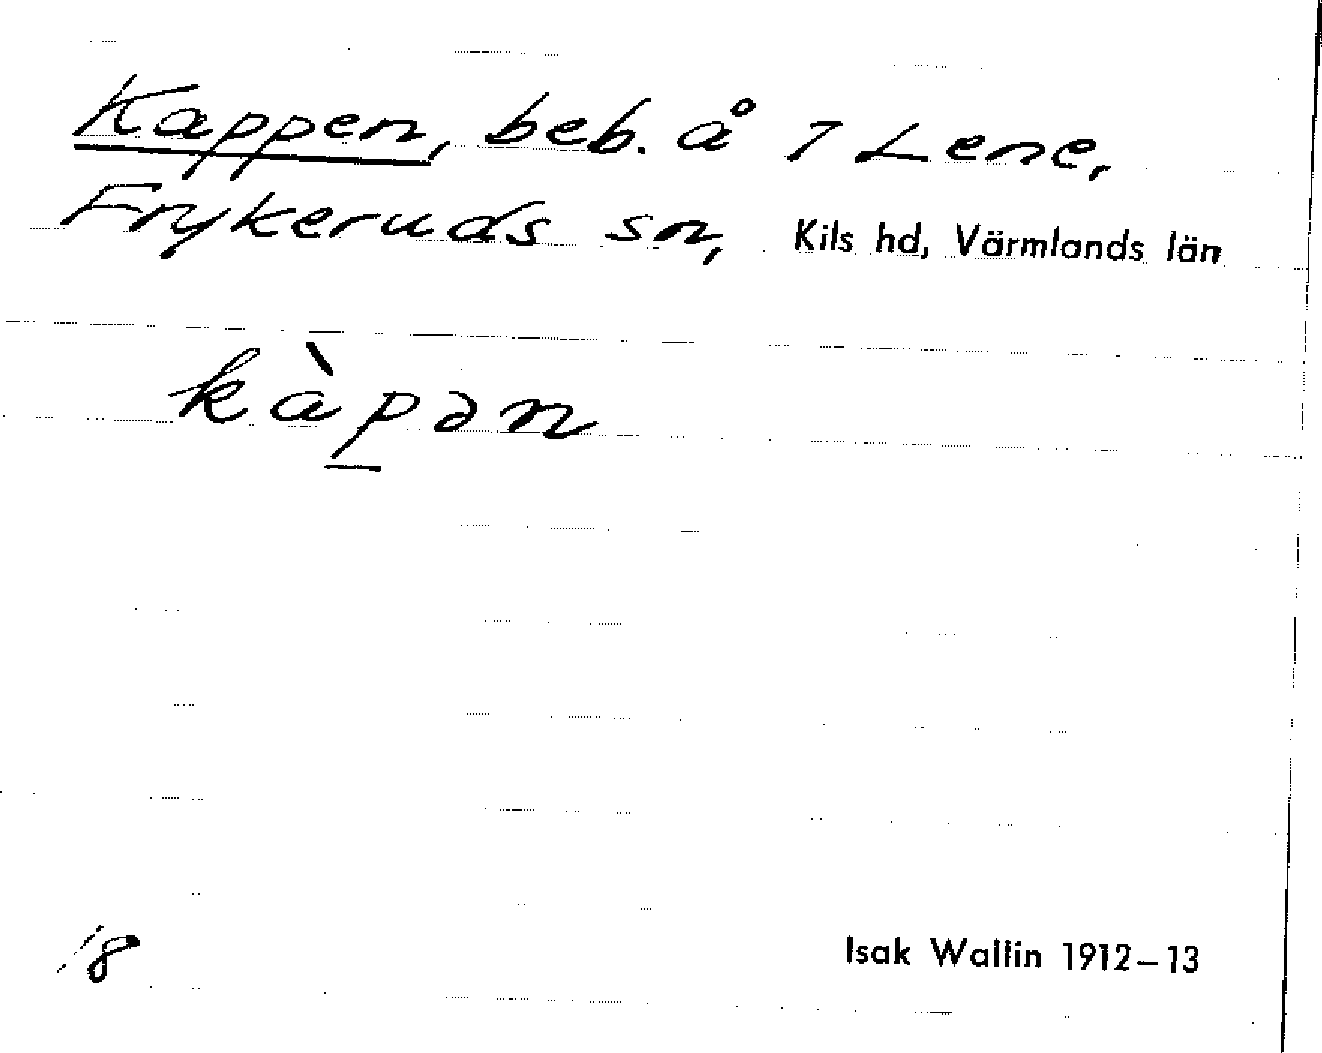 Kappen, beb. å 7 Lene,
Frykeruds sn, Kils hd, Värmlands län
kàp̱ən
18
Isak Wallin 1912–13